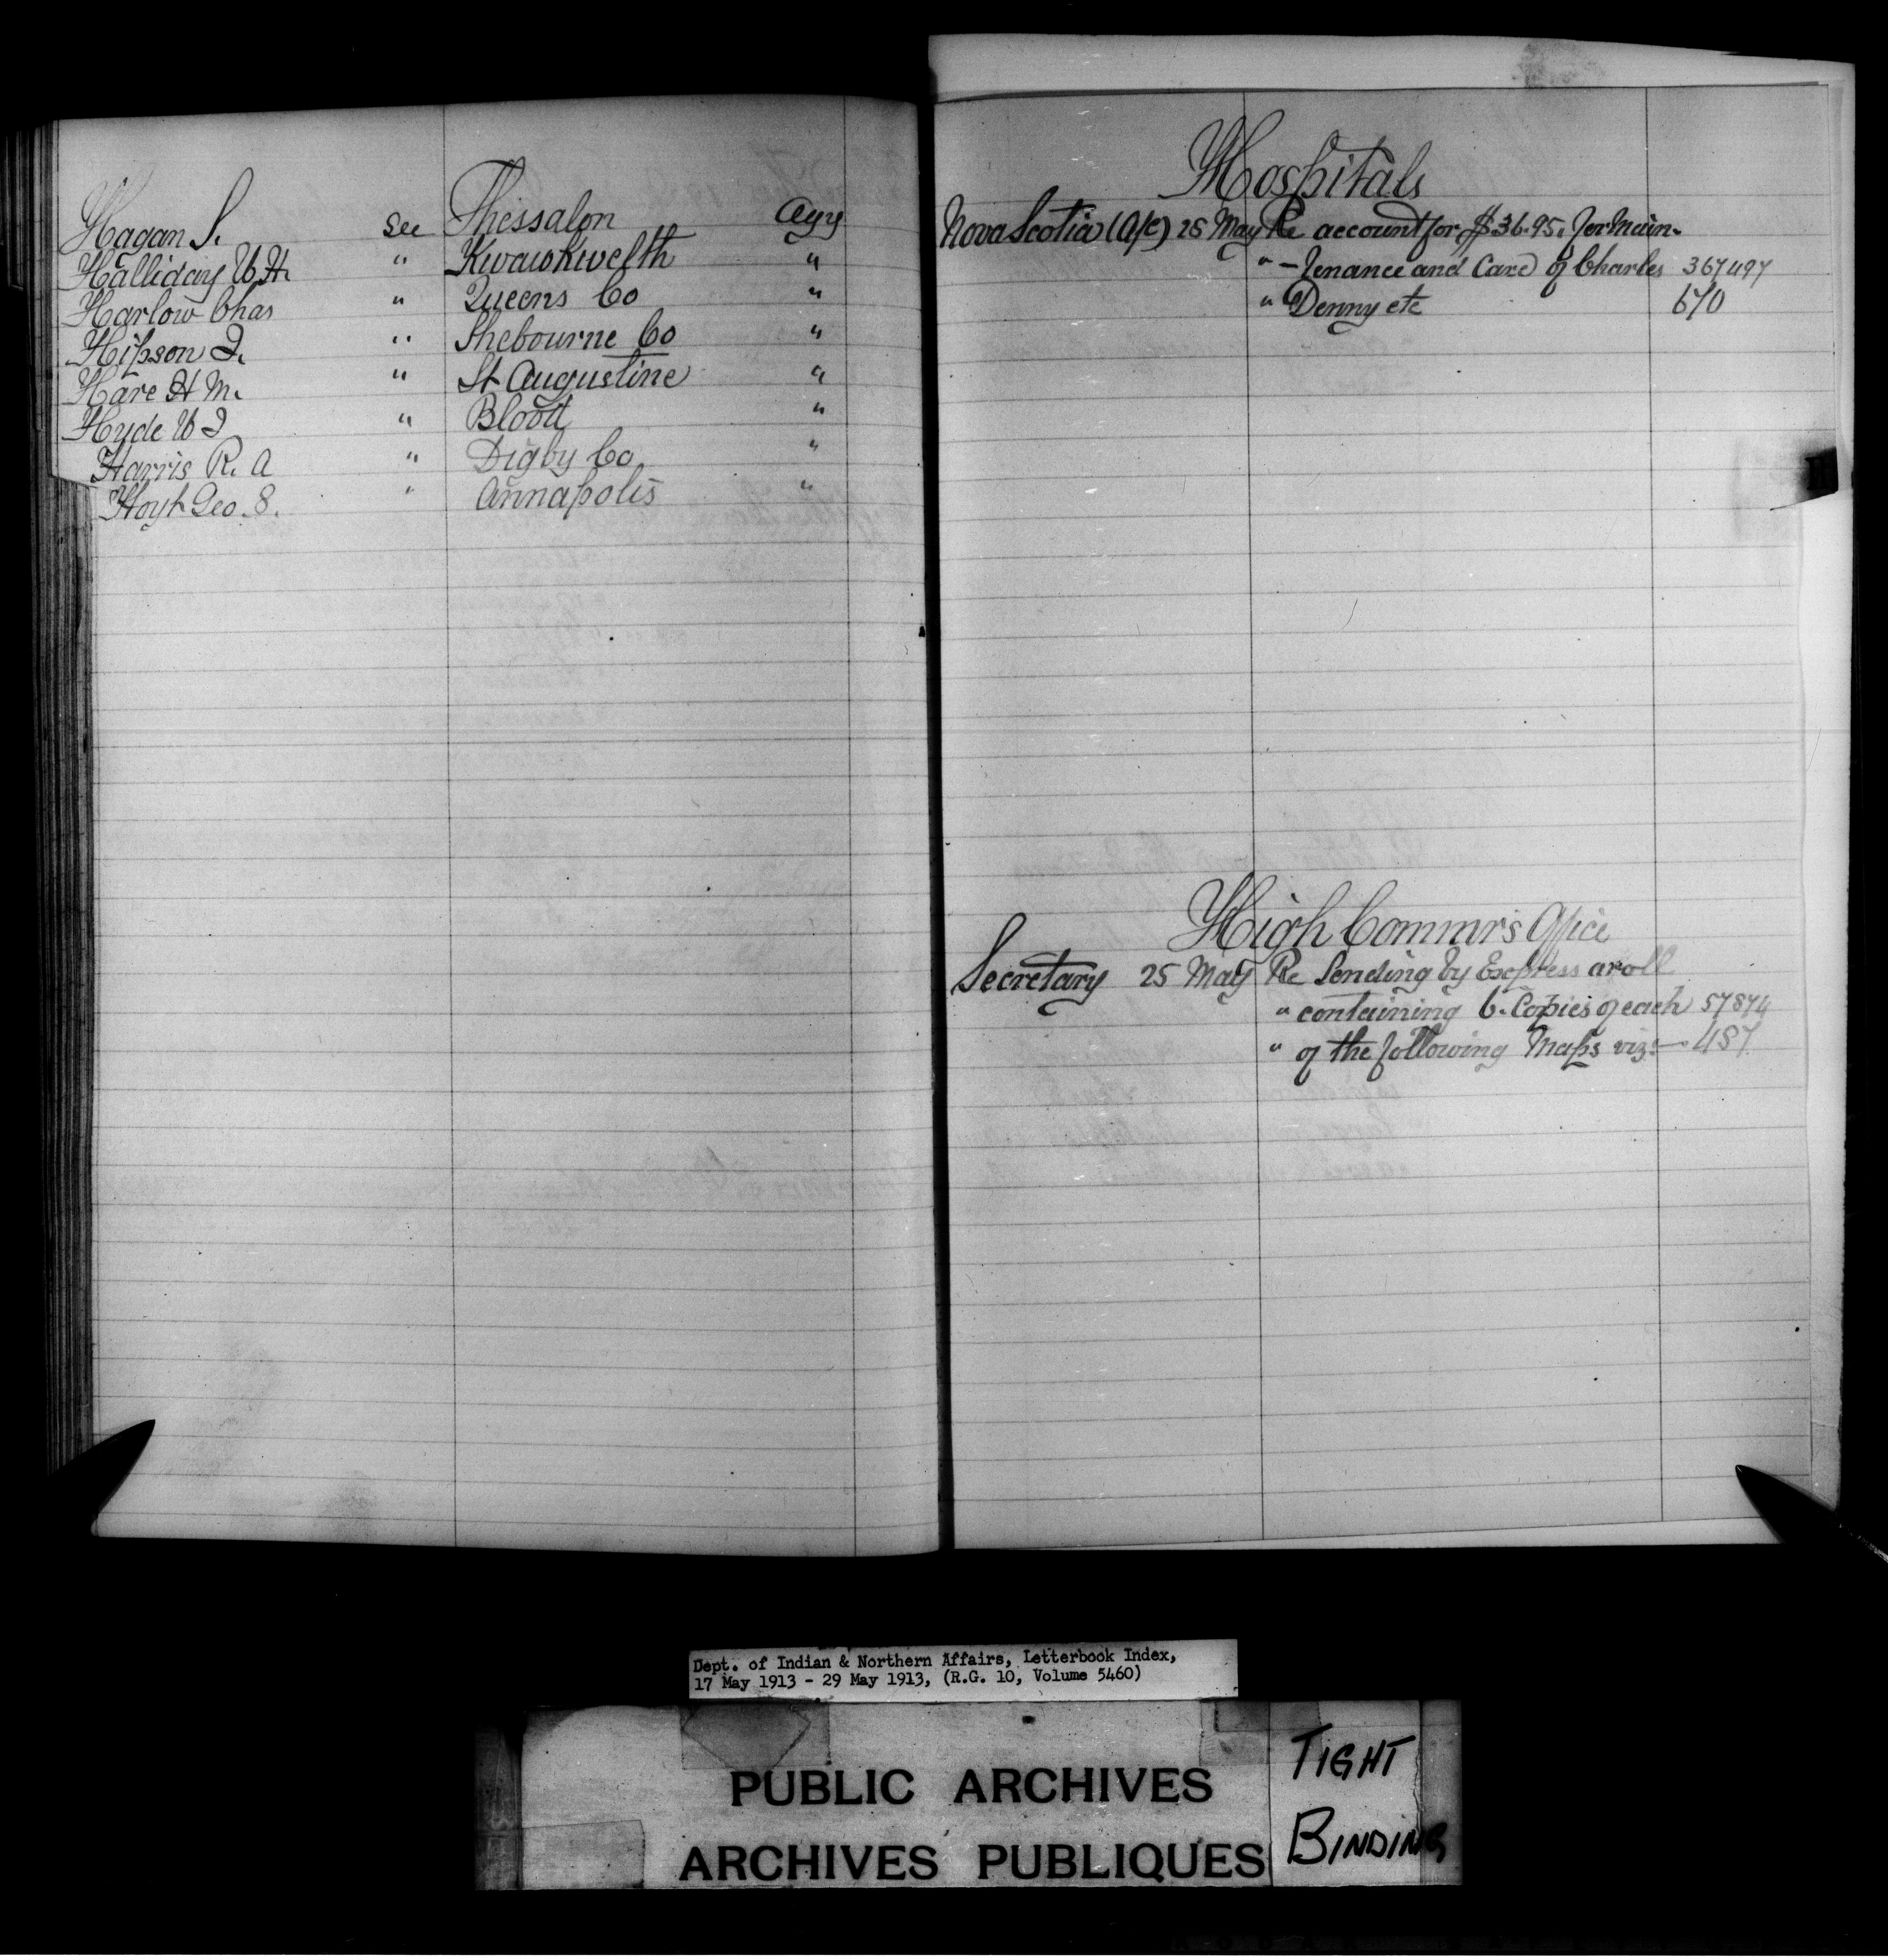 Hagan S. see Thessalon Agy
Halliday W.H. " Kwawkwelth "
Harlow Chas " Queens Co "
Hipson J. " Shebourne Co "
Hare H M. " St Augustine "
Hyde W J " Blood "
Harris R. A " Digby Co "
Hoyt Geo. 8. " Annapolis "
Hospitals
Nova Scotia (A/c) 25 May Re account for $36.95. for Main-
" - tenance and Care of Charles 367497
" Denny etc 670
High Commr's Office
Secretary 25 May Re Sending by Express a roll
" containing 6. Copies of each 57874
" of the following Maps viz:— 487
Dept. of Indian & Northern Affairs, Letterbook Index,
17 May 1913 - 29 May 1913, (R.G. 10, Volume 5460)
PUBLIC ARCHIVES
ARCHIVES PUBLIQUES
TIGHT
BINDING